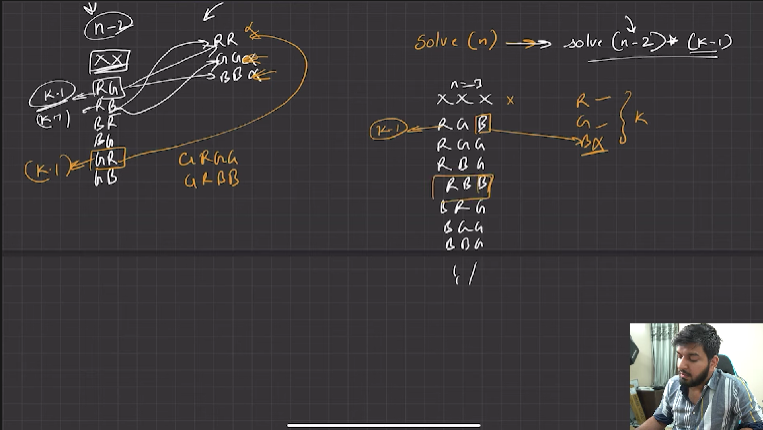 n-2
XX
RG
RB
BR
BG
GR
GB
K-1
(K-1)
(K-1)
RR x
GG x
BB x
GRGG
GRBB
solve (n) → solve (n-2) * (K-1)
n=3
X X X x
K-1
R G B
R G G
R B G
R B B
B R G
B G G
B B G
R
G
B x
K